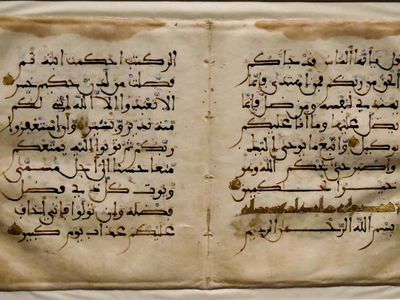 قل يأيها الناس قد جاكم
الحق من ربكم فمن اهتدى فإنما
يهتدي لنفسه ومن ضل فإنما
يضل عليها وما أنا عليكم
بوكيل واتبع ما يوحى إليك
واصبر حتى يحكم الله وهو
خير الحكمين
بسم الله الرحمن الرحيم
الر كتب احكمت ايته ثم
فصلت من لدن حكيم خبير
الا تعبدوا الا الله انني لكم
منه نذير وبشير وان استغفروا
ربكم ثم توبوا اليه يمتعكم
متعا حسنا الى اجل مسمى
ويوت كل ذي فضل
فضله وان تولوا فاني اخاف
عليكم عذاب يوم كبير